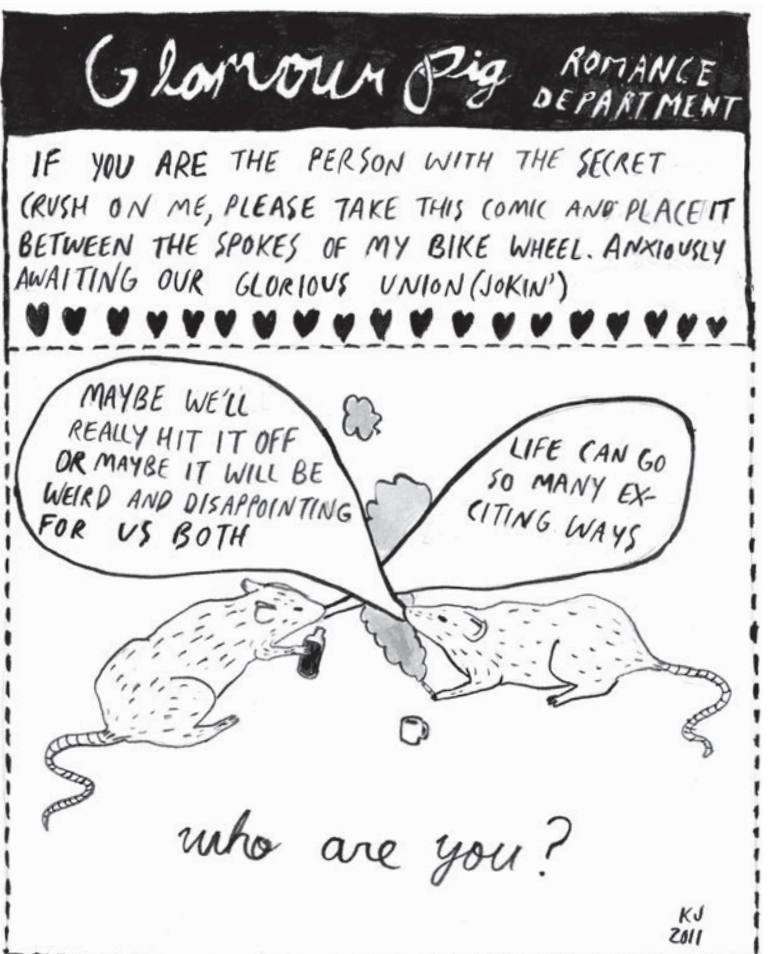 Glamour Pig ROMANCE
DEPARTMENT
IF YOU ARE THE PERSON WITH THE SECRET
CRUSH ON ME, PLEASE TAKE THIS COMIC AND PLACE IT
BETWEEN THE SPOKES OF MY BIKE WHEEL. ANXIOUSLY
AWAITING OUR GLORIOUS UNION (JOKIN')
MAYBE WE'LL
REALLY HIT IT OFF
OR MAYBE IT WILL BE
WEIRD AND DISAPPOINTING
FOR US BOTH
LIFE CAN GO
SO MANY EX-
CITING WAYS
who are you?
KJ
2011